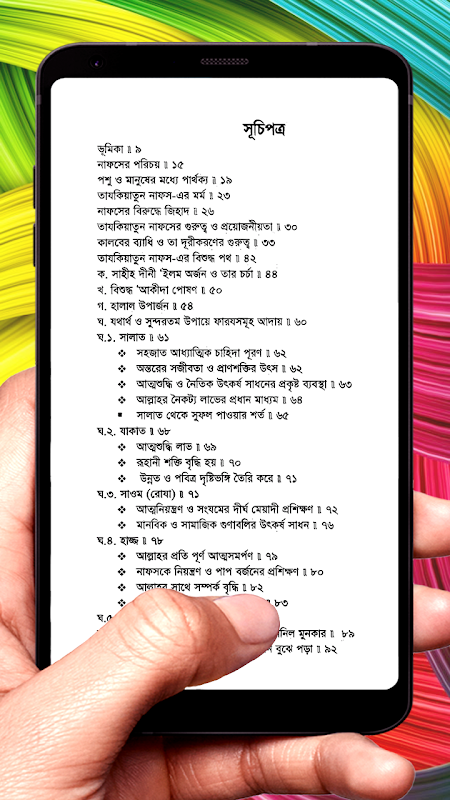 সূচিপত্র
ভূমিকা ॥ ৯
নাফসের পরিচয় ॥ ১৫
পশু ও মানুষের মধ্যে পার্থক্য ॥ ১৯
তাযকিয়াতুন নাফস-এর মর্ম ॥ ২৩
নাফসের বিরুদ্ধে জিহাদ ॥ ২৬
তাযকিয়াতুন নাফসের গুরুত্ব ও প্রয়োজনীয়তা ॥ ৩০
কালবের ব্যাধি ও তা দূরীকরণের গুরুত্ব ॥ ৩৩
তাযকিয়াতুন নাফস-এর বিশুদ্ধ পথ ॥ ৪২
ক. সাহীহ দীনী ‘ইলম অর্জন ও তার চর্চা ॥ ৪৪
খ. বিশুদ্ধ ‘আকীদা পোষণ ॥ ৫০
গ. হালাল উপার্জন ॥ ৫৪
ঘ. যথার্থ ও সুন্দরতম উপায়ে ফারযসমূহ আদায় ॥ ৬০
ঘ.১. সালাত ॥ ৬১
❖ সহজাত আধ্যাত্মিক চাহিদা পূরণ ॥ ৬২
❖ অন্তরের সজীবতা ও প্রাণশক্তির উৎস ॥ ৬২
❖ আত্মশুদ্ধি ও নৈতিক উৎকর্ষ সাধনের প্রকৃষ্ট ব্যবস্থা ॥ ৬৩
❖ আল্লাহর নৈকট্য লাভের প্রধান মাধ্যম ॥ ৬৪
▪ সালাত থেকে সুফল পাওয়ার শর্ত ॥ ৬৫
ঘ.২. যাকাত ॥ ৬৮
❖ আত্মশুদ্ধি লাভ ॥ ৬৯
❖ রূহানী শক্তি বৃদ্ধি হয় ॥ ৭০
❖ উন্নত ও পবিত্র দৃষ্টিভঙ্গি তৈরি করে ॥ ৭১
ঘ.৩. সাওম (রোযা) ॥ ৭১
❖ আত্মনিয়ন্ত্রণ ও সংযমের দীর্ঘ মেয়াদী প্রশিক্ষণ ॥ ৭২
❖ মানবিক ও সামাজিক গুণাবলির উৎকর্ষ সাধন ॥ ৭৬
ঘ.৪. হাজ্জ ॥ ৭৮
❖ আল্লাহর প্রতি পূর্ণ আত্মসমর্পণ ॥ ৭৯
❖ নাফসকে নিয়ন্ত্রণ ও পাপ বর্জনের প্রশিক্ষণ ॥ ৮০
❖ আল্লাহর সাথে সম্পর্ক বৃদ্ধি ॥ ৮২
❖ ॥ ৮৩
ঘ.৫
মুনকার ॥ ৮৯
বুঝে পড়া ॥ ৯২